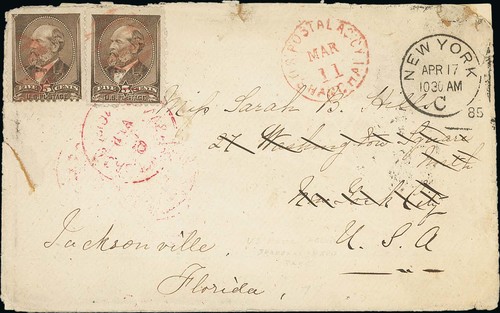 FIVE 5 CENTS
FIVE 5 CENTS
U.S. POSTAL AGCY
MAR
11
SHANGHAI
NEW YORK
APR 17
1030 AM
C
85
Miss Sarah B.
27 Washington Square
North
New York City
U.S.A
Jacksonville,
Florida,